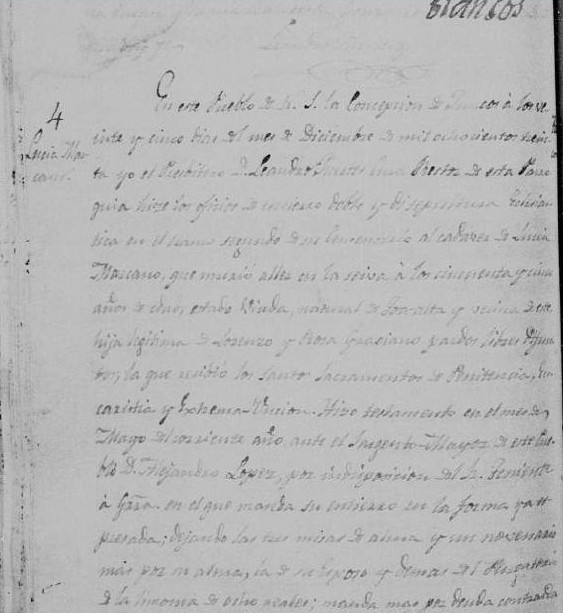 Blancos
4
Lucia Mar-
cano.
En este Pueblo de N. S. la Concepcion de Juncos à los ve-
inte y cinco dias del mes de Diciembre de mil ochocientos trein-
ta yo el Presbitero D. Leandro Cura Rector de esta Parro
quia hize los oficios de entierro doble y di sepultura Eclesias-
tica en el tramo segundo de su Cementerio al cadaver de Lucia
Marcano, que murió alter en la à los cincuenta y cinco
años de edad, estado Viuda, natural de Toa-alta y vecina de este
hija legitima de Lorenzo y Rosa Graciano pardos libres difun-
tos, la que recibió los Santos Sacramentos de Penitencia, Eu-
caristia y Extrema-Uncion. Hizo testamento en el mes de
Mayo del corriente año, ante el Sargento Mayor de este Pue-
blo D. Alejandro Lopez, por indisposicion del Sr. Teniente
à Grra. en el que manda su entierro en la forma ya ex
presada; dejando las tres misas de alma y un novenario
mas por su alma, la de su Esposo y demas del Purgatorio
de la limosna de ocho reales; manda mas por deuda contraida